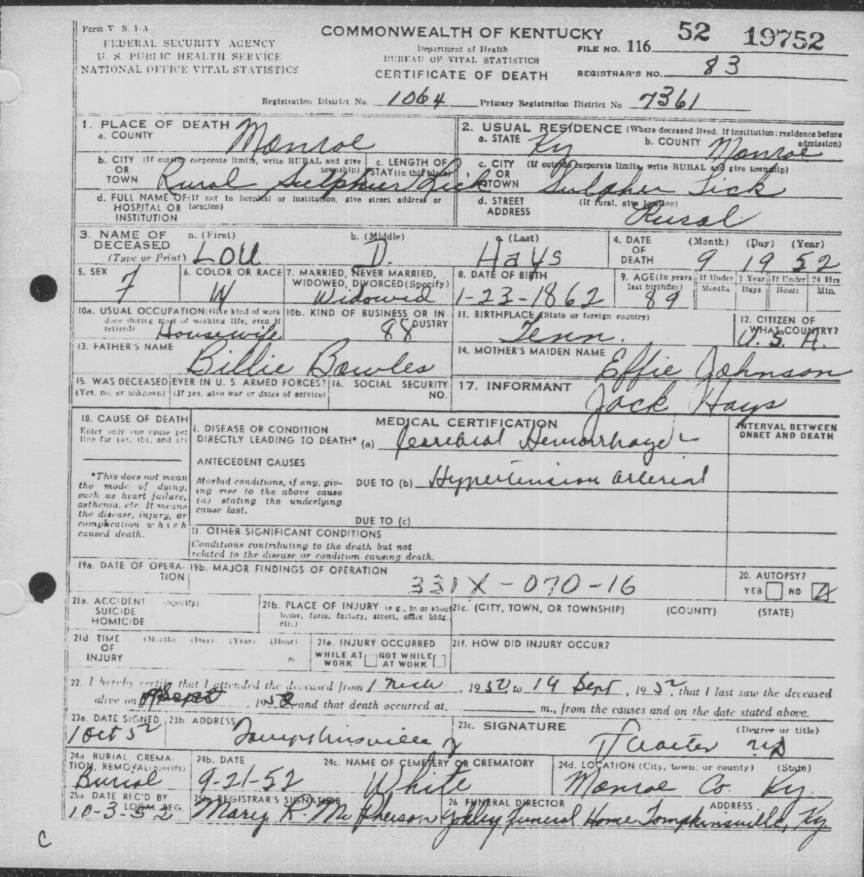 Form V. S. 1-A
FEDERAL SECURITY AGENCY
U. S. PUBLIC HEALTH SERVICE
NATIONAL OFFICE VITAL STATISTICS
COMMONWEALTH OF KENTUCKY
Department of Health
BUREAU OF VITAL STATISTICS
CERTIFICATE OF DEATH
FILE NO. 116 52 19752
REGISTRAR'S NO. 83
Registration District No. 1064 Primary Registration District No 7361
1. PLACE OF DEATH
a. COUNTY Monroe
b. CITY (If outside corporate limits, write RURAL and give township)
OR
TOWN Rural Sulphur Lick
c. LENGTH OF STAY (in this place)
d. FULL NAME OF (If not in hospital or institution, give street address or location)
HOSPITAL OR
INSTITUTION
2. USUAL RESIDENCE (Where deceased lived. If institution: residence before admission)
a. STATE Ky b. COUNTY Monroe
c. CITY (If outside corporate limits, write RURAL and give township)
OR
TOWN Sulpher Lick
d. STREET (If rural, give location)
ADDRESS Rural
3. NAME OF DECEASED
(Type or Print)
a. (First) b. (Middle) c. (Last)
Lou D. Hays
4. DATE OF DEATH (Month) (Day) (Year)
9 19 52
5. SEX
F
6. COLOR OR RACE
W
7. MARRIED, NEVER MARRIED, WIDOWED, DIVORCED (Specify)
Widowed
8. DATE OF BIRTH
1-23-1862
9. AGE (In years last birthday) If Under 1 Year If Under 24 Hrs
Months Days Hours Min.
89
10a. USUAL OCCUPATION (Give kind of work done during most of working life, even if retired)
Housewife
10b. KIND OF BUSINESS OR INDUSTRY
88
11. BIRTHPLACE (State or foreign country)
Tenn.
12. CITIZEN OF WHAT COUNTRY?
U. S. A.
13. FATHER'S NAME
Billie Bowles
14. MOTHER'S MAIDEN NAME
Effie Johnson
15. WAS DECEASED EVER IN U. S. ARMED FORCES?
(Yes, no, or unknown) (If yes, give war or dates of service)
16. SOCIAL SECURITY NO.
17. INFORMANT
Jack Hays
18. CAUSE OF DEATH
Enter only one cause per line for (a), (b), and (c)
*This does not mean the mode of dying, such as heart failure, asthenia, etc. It means the disease, injury, or complication which caused death.
MEDICAL CERTIFICATION
INTERVAL BETWEEN ONSET AND DEATH
I. DISEASE OR CONDITION
DIRECTLY LEADING TO DEATH* (a) Cerebral Hemorrhage
ANTECEDENT CAUSES
Morbid conditions, if any, giving rise to the above cause (a) stating the underlying cause last.
DUE TO (b) Hypertension arterial
DUE TO (c)
II. OTHER SIGNIFICANT CONDITIONS
Conditions contributing to the death but not related to the disease or condition causing death.
19a. DATE OF OPERATION
19b. MAJOR FINDINGS OF OPERATION
331X-070-16
20. AUTOPSY?
YES NO
21a. ACCIDENT (Specify)
SUICIDE
HOMICIDE
21b. PLACE OF INJURY (e.g., in or about home, farm, factory, street, office bldg. etc.)
21c. (CITY, TOWN, OR TOWNSHIP) (COUNTY) (STATE)
21d TIME OF INJURY (Month) (Day) (Year) (Hour)
m
21e. INJURY OCCURRED
WHILE AT WORK NOT WHILE AT WORK
21f. HOW DID INJURY OCCUR?
22. I hereby certify that I attended the deceased from 1, 1952 to 19 Sept, 1952, that I last saw the deceased
alive on 19 Sept 1952 and that death occurred at m., from the causes and on the date stated above.
23a. DATE SIGNED
1 Oct 52
23b ADDRESS
Tompkinsville Ky
23c. SIGNATURE (Degree or title)
MD
24a BURIAL, CREMATION, REMOVAL (Specify)
Burial
24b. DATE
9-21-52
24c. NAME OF CEMETERY OR CREMATORY
White
24d. LOCATION (City, town, or county) (State)
Monroe Co. Ky.
25a DATE REC'D BY LOCAL REG.
10-3-52
25b. REGISTRAR'S SIGNATURE
Mary K. McPherson
26 FUNERAL DIRECTOR ADDRESS
Yokley Funeral Home Tompkinsville, Ky
C